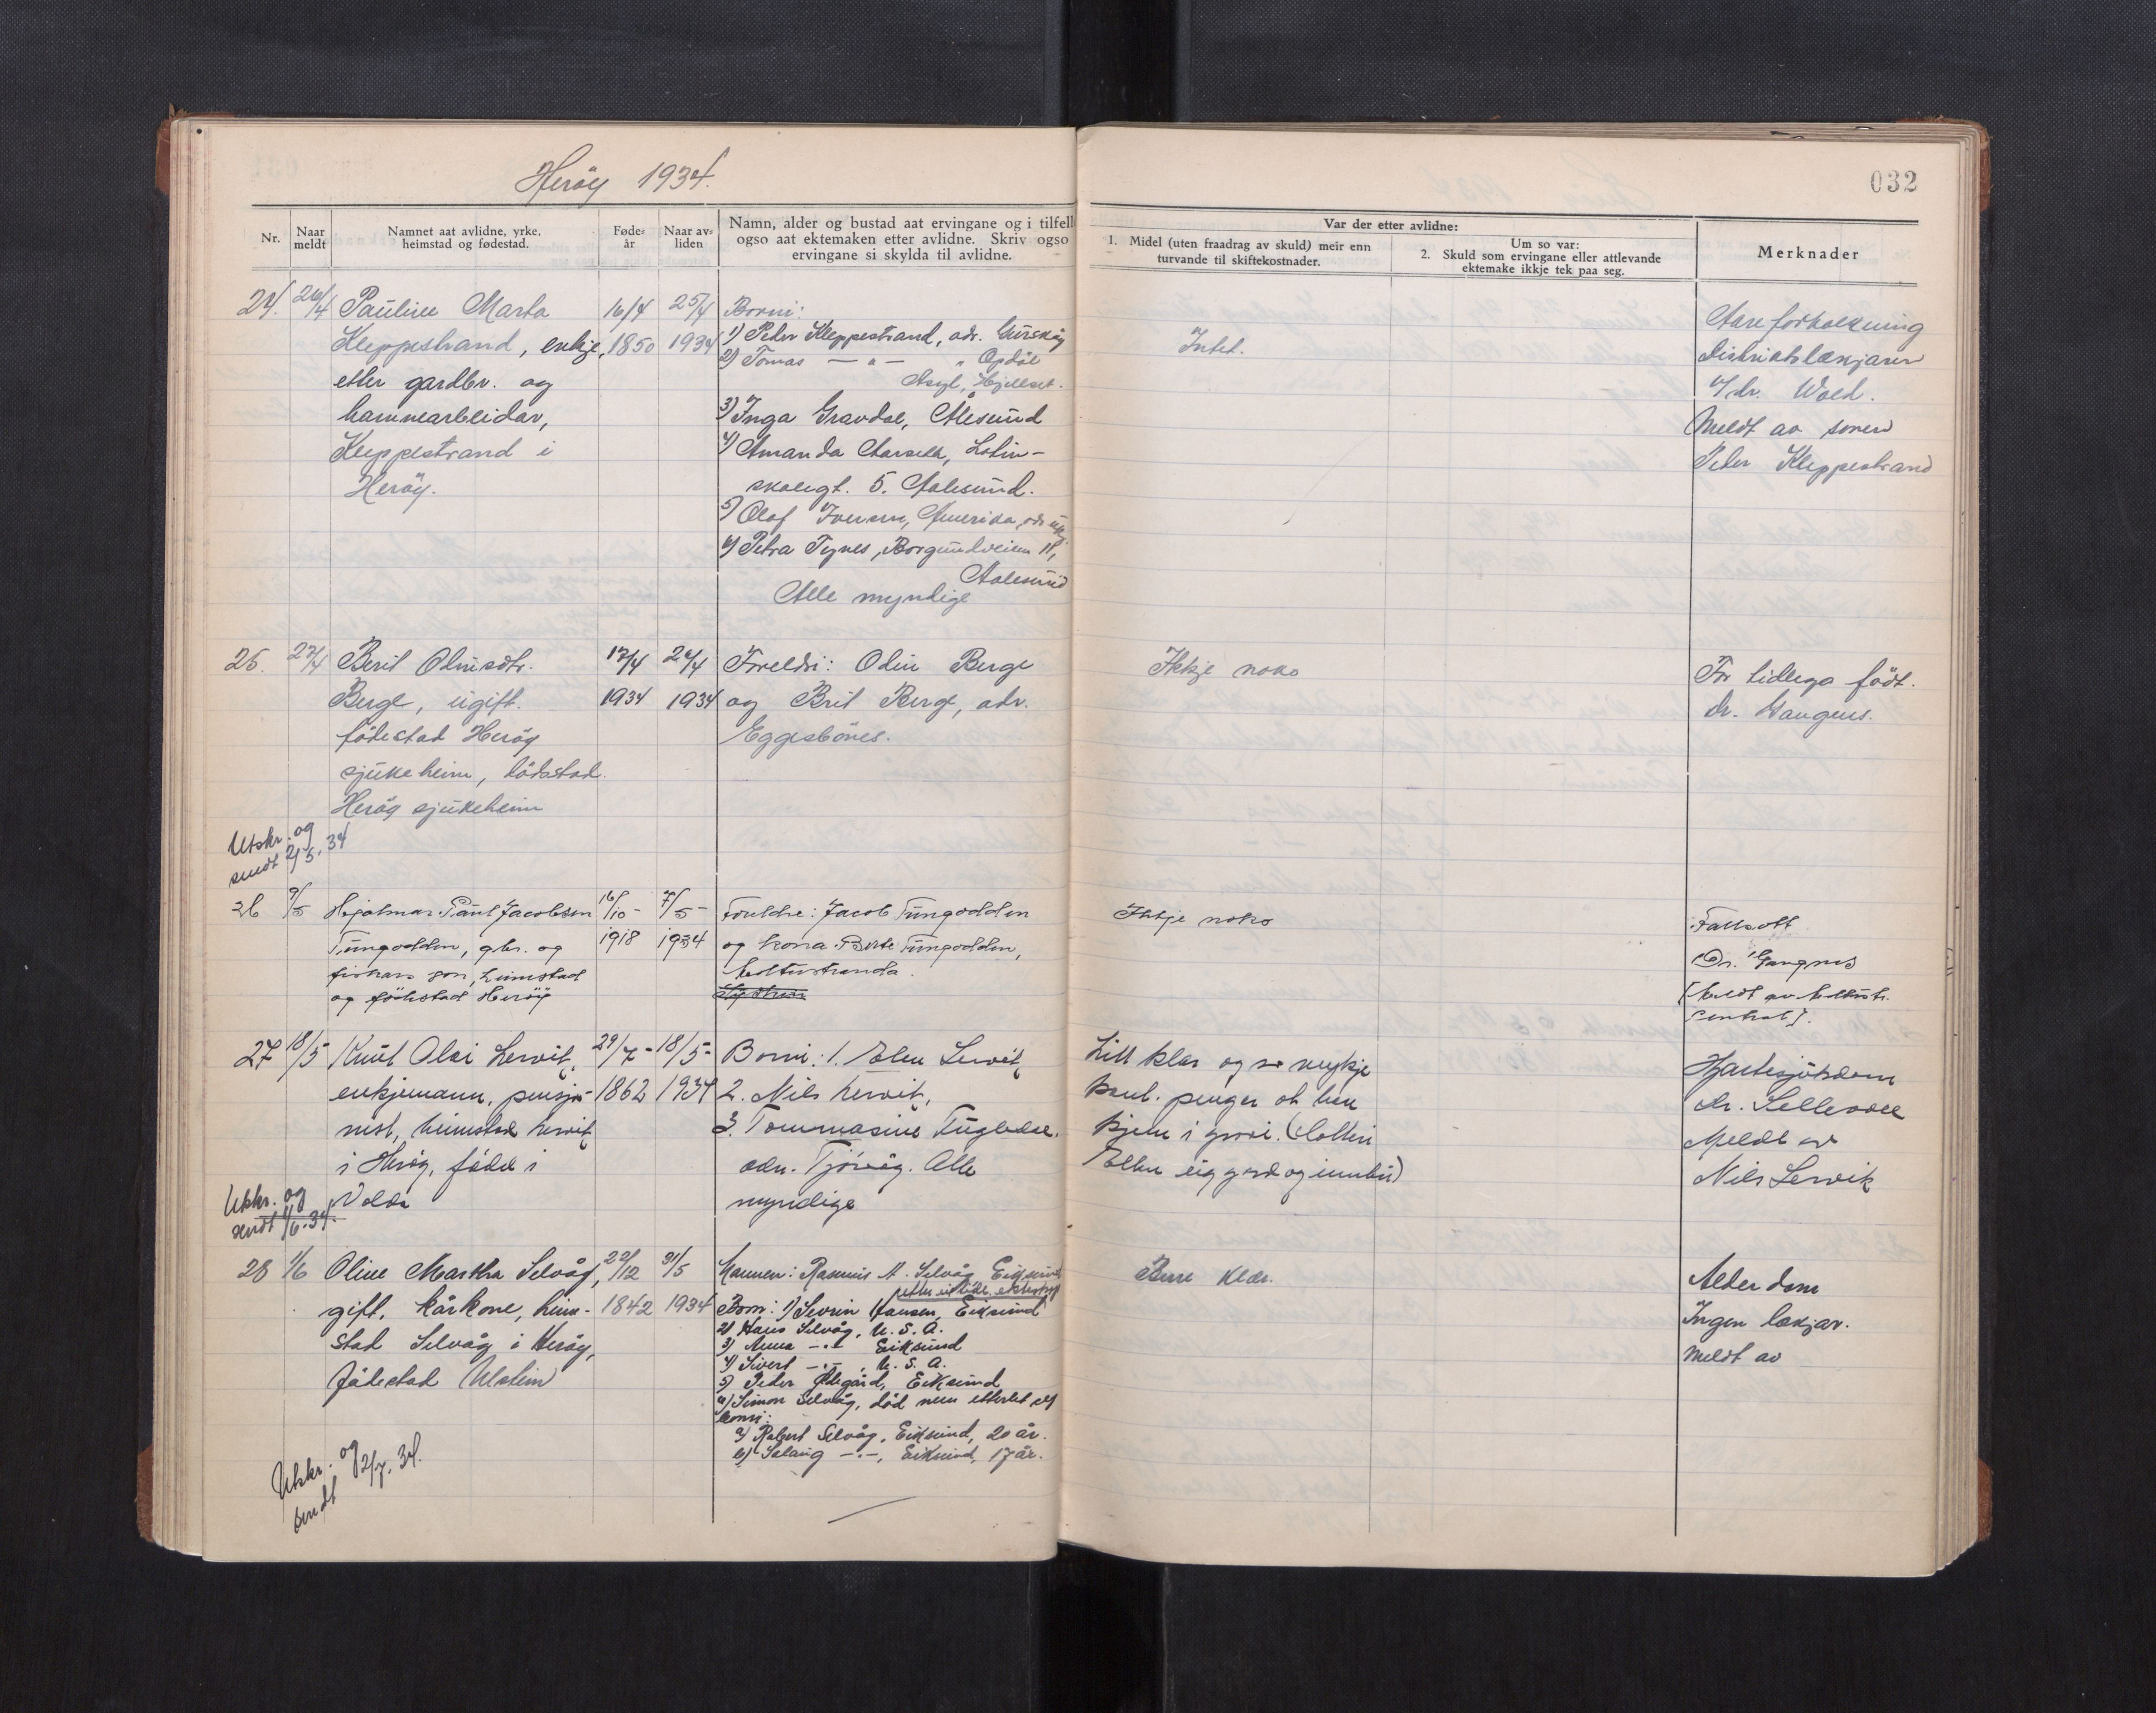 Herøy 1934.
032
Nr.
Naar meldt
Namnet aat avlidne, yrke, heimstad og fødestad.
Føde-år
Naar av-liden
Namn, alder og bustad aat ervingane og i tilfell ogso aat ektemaken etter avlidne. Skriv ogso ervingane si skylda til avlidne.
Var der etter avlidne:
1. Midel (uten fraadrag av skuld) meir enn turvande til skiftekostnader.
Um so var:
2. Skuld som ervingane eller attlevande ektemake ikkje tek paa seg.
Merknader
24. 26/4 Pauline Marta
Kleppestrand, enkje,
etter gardbr. og
hamnearbeidar,
Kleppestrand i
Herøy.
16/4
1850
25/4
1934
Borni:
1) Peder Kleppestrand, adr. Gurskøy
2) Tomas — " — " Opdøl
Asyl, Hjellset.
3) Inga Gravdal, Ålesund
4) Amanda Aarseth, Latin-
skolegt. 5. Aalesund.
5) Olaf Iversen, Amerika, adr. ukj.
6) Petra Tynes, Borgundveien 11,
Aalesund
Alle myndige
Intet.
Aareforkalkning
Distriktslækjaren
v/dr. Wold.
Meldt av sonen
Peder Kleppestrand
25. 27/4 Berit Olinsdtr.
Berge, ugift.
fødestad Herøy
sjukeheim, dødsstad
Herøy sjukeheim
17/4
1934
24/4
1934
Foreldri: Odin Berge
og Brit Berge, adr.
Eggesbönes.
Ikkje noko
For tidlega födt.
Dr. Gangnes.
Utskr. og
sendt 2/5.34
26 9/5 Hjalmar Paul Jacobsen
Tungodden, gbr. og
fiskars son, heimstad
og födestad Heröy
16/10-
1918
7/5-
1934
Foreldre: Jacob Tungodden
og kona Berte Tungodden,
Moltustranda.
Ikkje noko
Fallsott
Dr. Gangnes
(Meldt av Moltustr.
Sentral).
27 18/5 Knut Olai Lervik,
enkjemann, pensjo-
nist, heimstad Lervik
i Herøy, född i
Volda
29/7-
1862
18/5-
1934
Borni: 1. Elen Lervik,
2. Nils Lervik,
3. Tommasine Fugledal.
adr. Tjörvåg. Alle
myndige
Litt klær og so mykje
kont. pengar at han
kjem i jordi. (Dotteri
Ellen eig gard og innbu)
Hjartesjukdom
dr. Sellevold
Meldt av
Nils Lervik
Utskr. og
sendt 1/6.34.
28 1/6 Oline Martha Selvåg,
gift, kårkone, heim-
stad Selvåg i Herøy,
Födestad Ulstein
22/12
1842
31/5
1934
Mannen: Rasmus A. Selvåg Eiksund
Born: 1) Sevrin Hansen, Eiksund
2) Hans Selvåg, U.S.A.
3) Anna —"— Eiksund
4) Sivert —"—, U.S.A.
5) Peder Ödegård, Eiksund
6) Simon Selvåg, död men etterlet seg
borni:
a) Robert Selvåg, Eiksund, 20 år.
b) Solaug —"—, Eiksund, 17 år.
Berre klær.
Alderdom
Ingen lækjar.
Meldt av
Utskr. og
sendt 2/7.34.